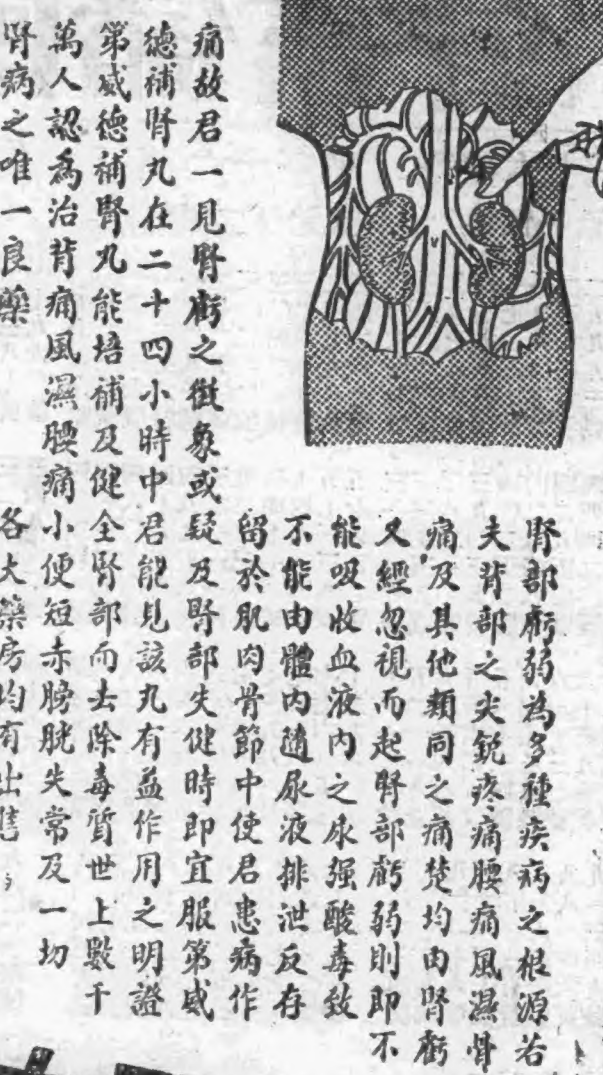 腎部虧弱為多種疾病之根源若
夫背部之尖銳疼痛腰痛風濕骨
痛及其他類同之痛楚均由腎虧
又經忽視而起腎部虧弱則即不
能吸收血液內之尿强酸毒致
不能由體內隨尿液排泄反存
留於肌肉骨節中使君患病作
痛故君一見腎虧之徵象或疑及腎部失健時即宜服第威
德補腎丸在二十四小時中君能見該丸有益作用之明證
第威德補腎丸能培補及健全腎部而去除毒質世上數千
萬人認為治背痛風濕腰痛小便短赤膀胱失常及一切
腎病之唯一良藥 各大藥房均有出售